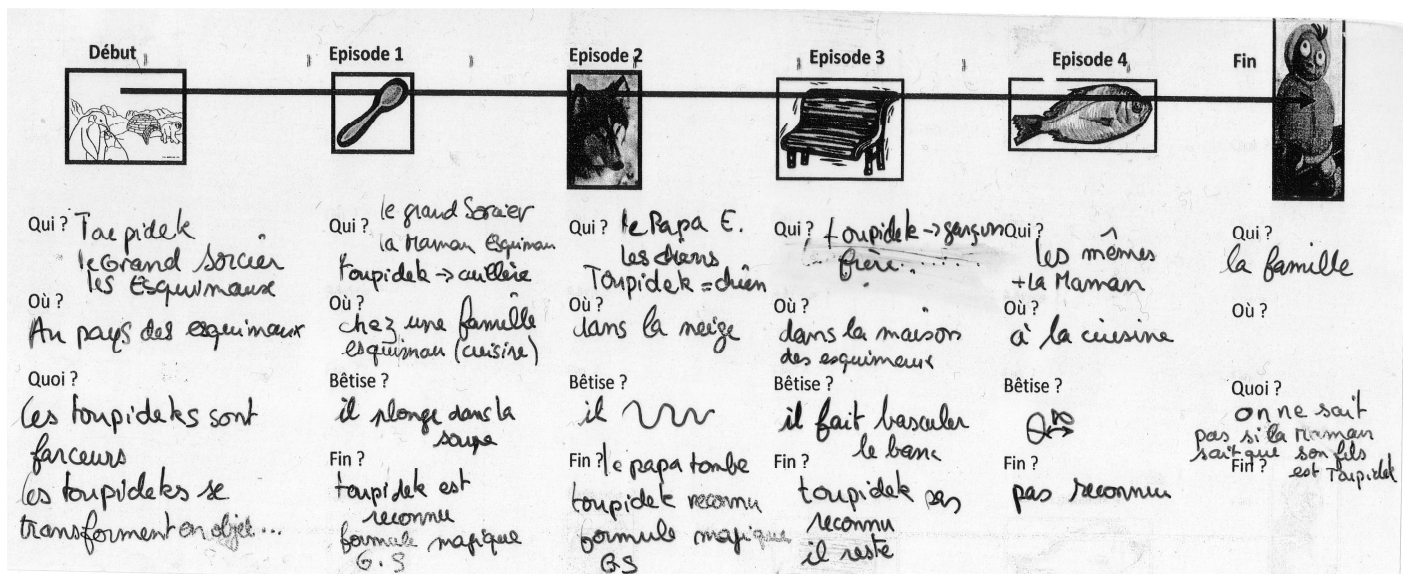 Début
Qui ? Toupidek
le Grand Sorcier
les Esquimaux
Où ?
Au pays des esquimaux
Quoi ?
les toupideks sont
farceurs
les toupideks se
transforment en objet...
Episode 1
Qui ? le grand Sorcier
la Maman Esquimau
toupidek -> cuillère
Où ?
chez une famille
esquimau (cuisine)
Bêtise ?
il plonge dans la
soupe
Fin ?
toupidek est
reconnu
formule magique
G.S
Episode 2
Qui ? le Papa E.
Les chiens
Toupidek = chien
Où ?
dans la neige
Bêtise ?
il
Fin ? le papa tombe
toupidek reconnu
formule magique
GS
Episode 3
Qui ? toupidek -> garçon
frère
Où ?
dans la maison
des esquimaux
Bêtise ?
il fait basculer
le banc
Fin ?
toupidek pas
reconnu
il reste
Episode 4
Qui ?
les mêmes
+ la Maman
Où ?
à la cuisine
Bêtise ?
Fin ?
pas reconnu
Fin
Qui ?
la famille
Où ?
Quoi ?
on ne sait
pas si la Maman
sait que son fils
Fin ? est Toupidek